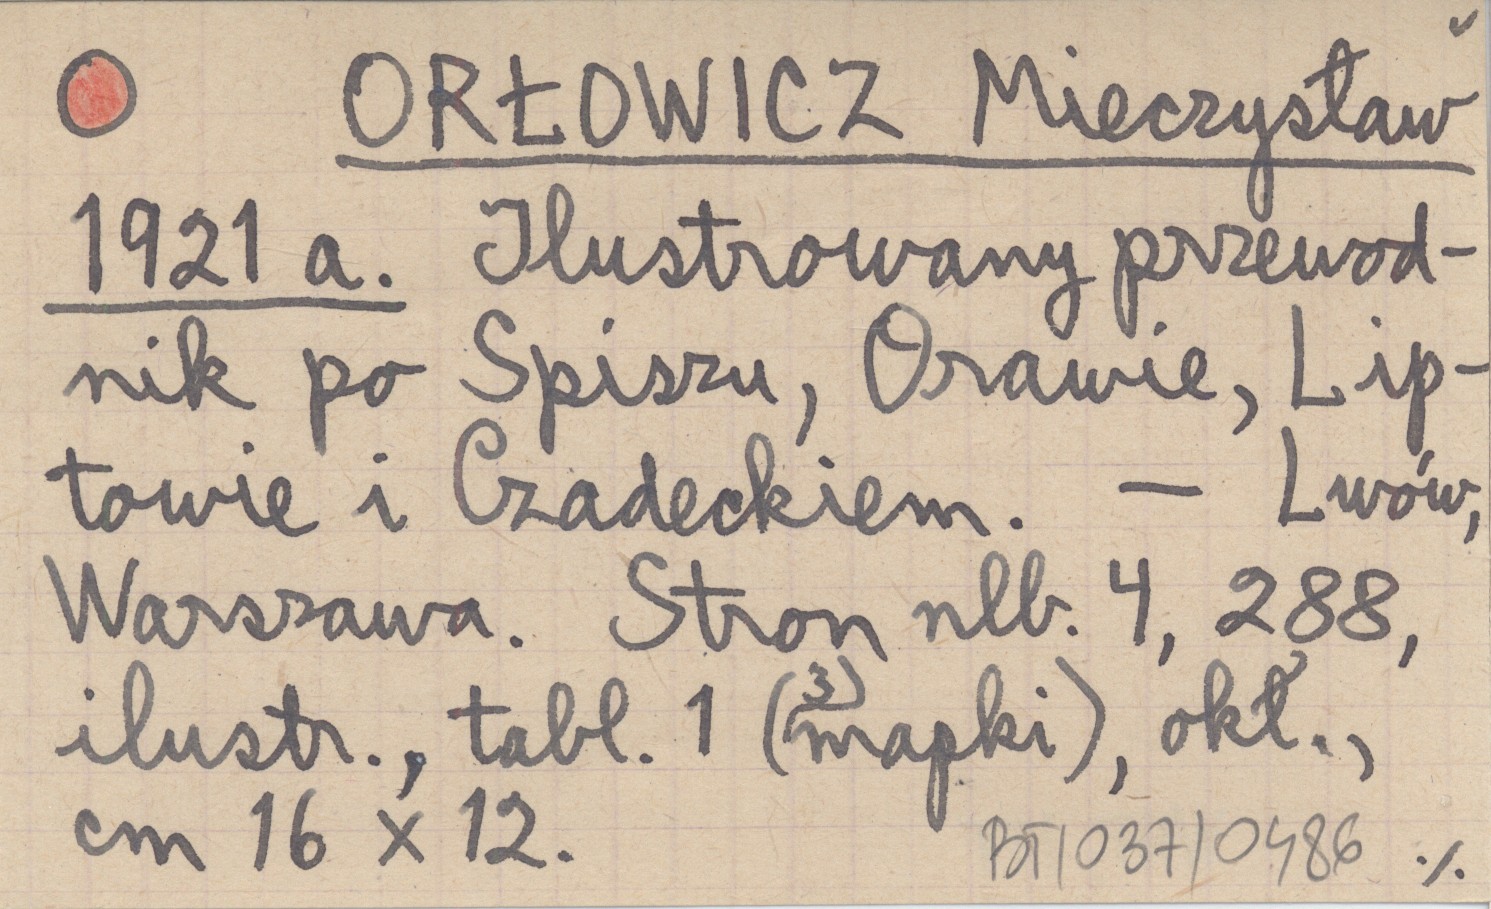 ORŁOWICZ Mieczysław
1921 a. Ilustrowany przewod-
nik po Spiszu, Orawie, Lip-
towie i Czadeckiem. — Lwów,
Warszawa. Stron nlb. 4, 288,
ilustr., tabl. 1 (3 mapki), okł.,
cm 16 x 12.
BT/037/0486 ./.